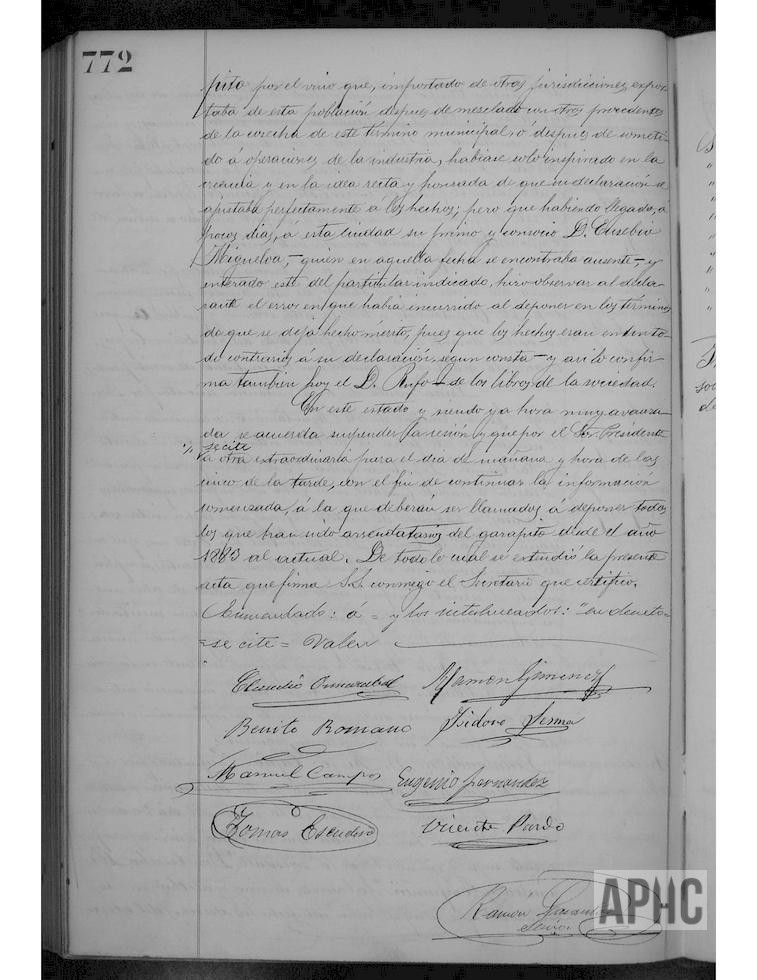 772
pito por el vino que, importado de otras jurisdicciones, expor-
taba de esta población despues de mesclado con otros procedentes
de la cosecha de este término municipal, ó despues de someti-
do á operaciones de la industria, habíase solo inspirado en la
creencia y en la idea recta y honrada de que su declaración se
ajustaba perfectamente á los hechos; pero que habiendo llegado, á
pocos dias, á esta ciudad su primo y consocio D. Eusebio
Migueloa, — quien en aquella fecha se encontraba ausente —, y
enterado este del particular indicado, hizo observar al decla-
rante el error en que habia incurrido al deponer en los términos
de que se deja hecho merito, pues que los hechos eran en un to-
do contrarios á su declaración, segun consta — y asi lo confir-
ma tambien hoy el D. Rufo — de los libros de la sociedad.
En este estado y siendo ya hora muy avanza-
da se acuerda suspender la sesión y que por el Sr. Presidente
se cite
á otra extraordinaria para el dia de mañana y hora de las
cinco de la tarde, con el fin de continuar la información
comenzada, á la que deberán ser llamados á deponer todos
los que han sido arrendatarios del garapito desde el año
1883 al actual. De todo lo cual se extendió la presente
acta que firma S.S. conmigo el Secretario que certifico.
Enmendado: á = y los interlineados: "en
= se cite = Valen
Benito Romano
Ramon Gimenez
Isidoro Serma
Manuel Campos
Eugenio Fernandez
Tomas Escudero
Vicente Pardo
Ramón
APHC